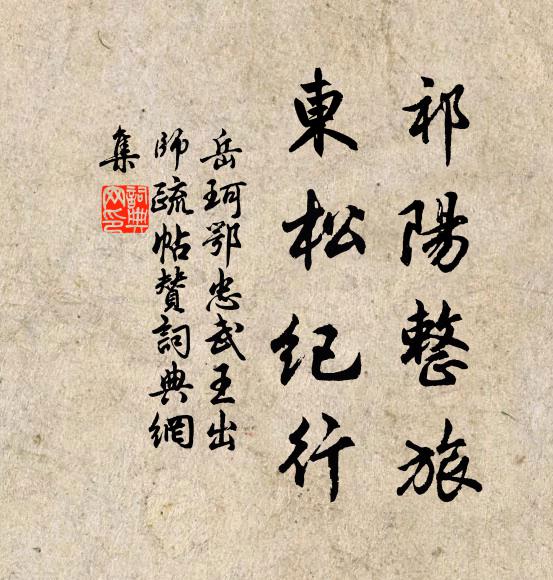 祁陽整旅
東松紀行
岳珂鄂忠武王出
師疏帖贊詞典網
集
詞典網印